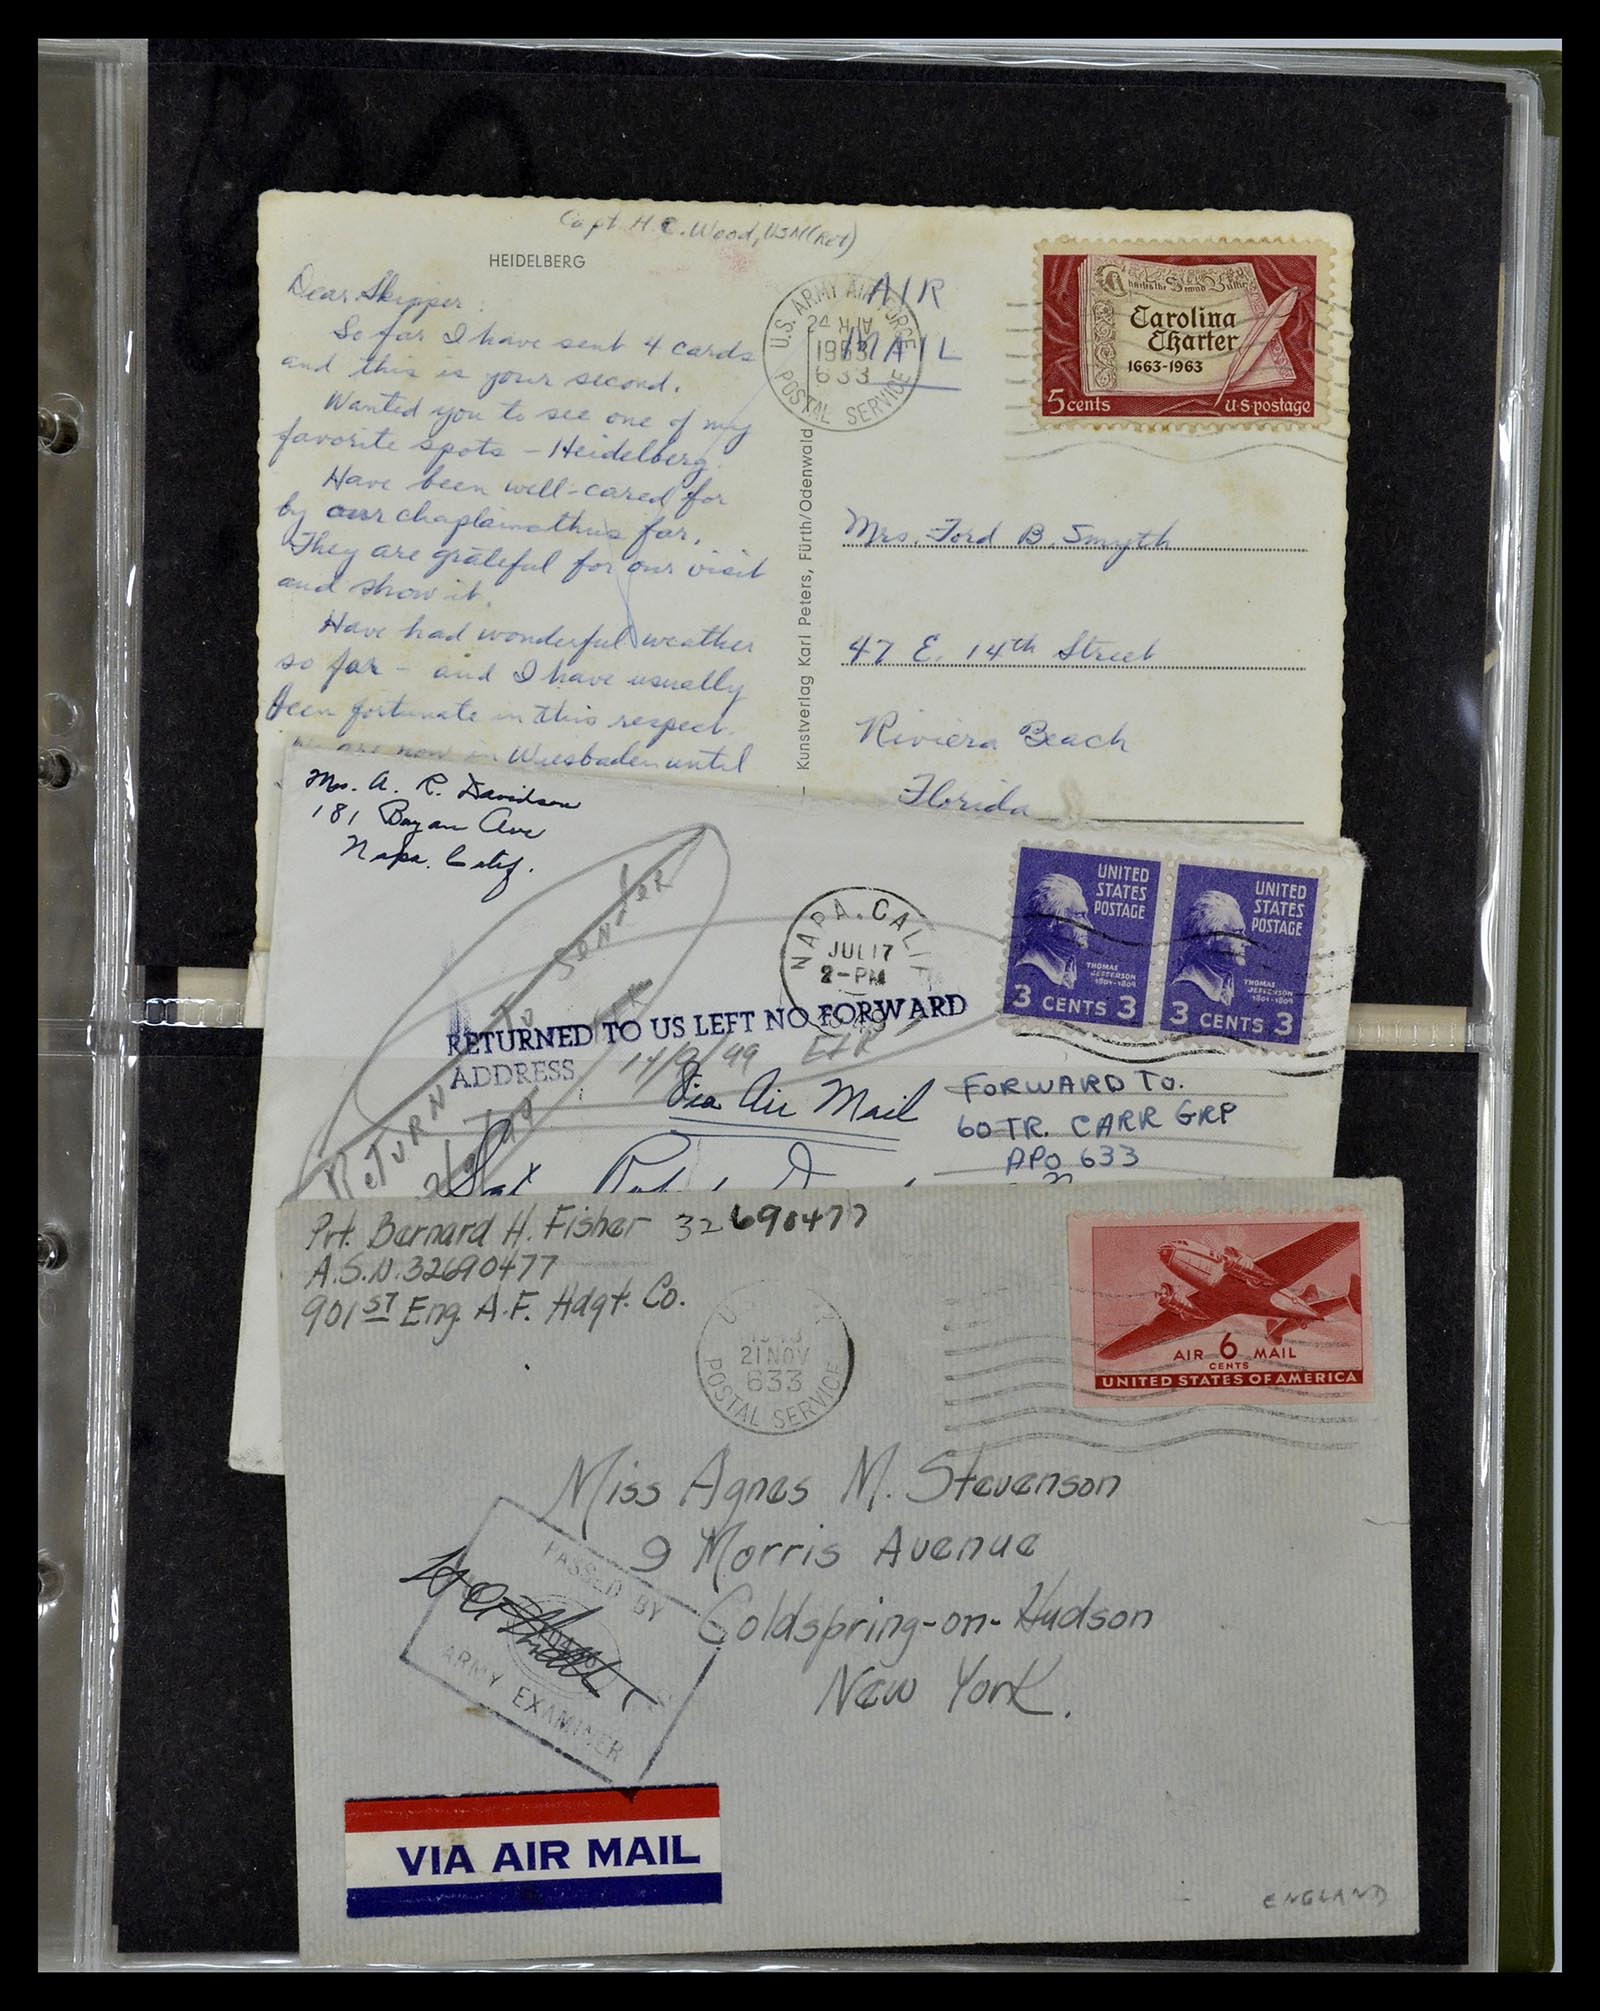 Capt. H. C. Wood, USN (Ret)
HEIDELBERG
Dear Skipper:
So far I have sent 4 cards
and this is your second.
Wanted you to see one of my
favorite spots - Heidelberg.
Have been well-cared for
by our chaplains thus far.
They are grateful for our visit
and show it.
Have had wonderful weather
so far - and I have usually
been fortunate in this respect.
We are now in Wiesbaden until
U.S. ARMY AIR FORCE
24
1963
633
POSTAL SERVICE
AIR
MAIL
Charles the Second
Carolina
Charter
1663-1963
5 cents U·S·postage
Kunstverlag Karl Peters, Fürth/Odenwald
Mrs. Ford B. Smyth
47 E. 14th Street
Riviera Beach
Florida
Mrs. A. R. Davidson
181 Bayan Ave
Napa. Calif.
RETURN TO SENDER
NAPA, CALIF
JUL 17
2-PM
UNITED
STATES
POSTAGE
THOMAS
JEFFERSON
1801-1809
3 CENTS 3
UNITED
STATES
POSTAGE
THOMAS
JEFFERSON
1801-1809
3 CENTS 3
RETURNED TO US LEFT NO FORWARD
ADDRESS
Via Air Mail
FORWARD TO.
60 TR. CARR GRP
APO 633
Sgt
Pvt. Bernard H. Fisher 32690477
A.S.N. 32690477
901ST Eng. A.F. Hdqt. Co.
21 NOV
633
POSTAL SERVICE
AIR 6 MAIL
CENTS
UNITED STATES OF AMERICA
Miss Agnes M. Stevenson
9 Morris Avenue
Coldspring-on-Hudson
New York.
PASSED BY
ARMY EXAMINER
VIA AIR MAIL
ENGLAND